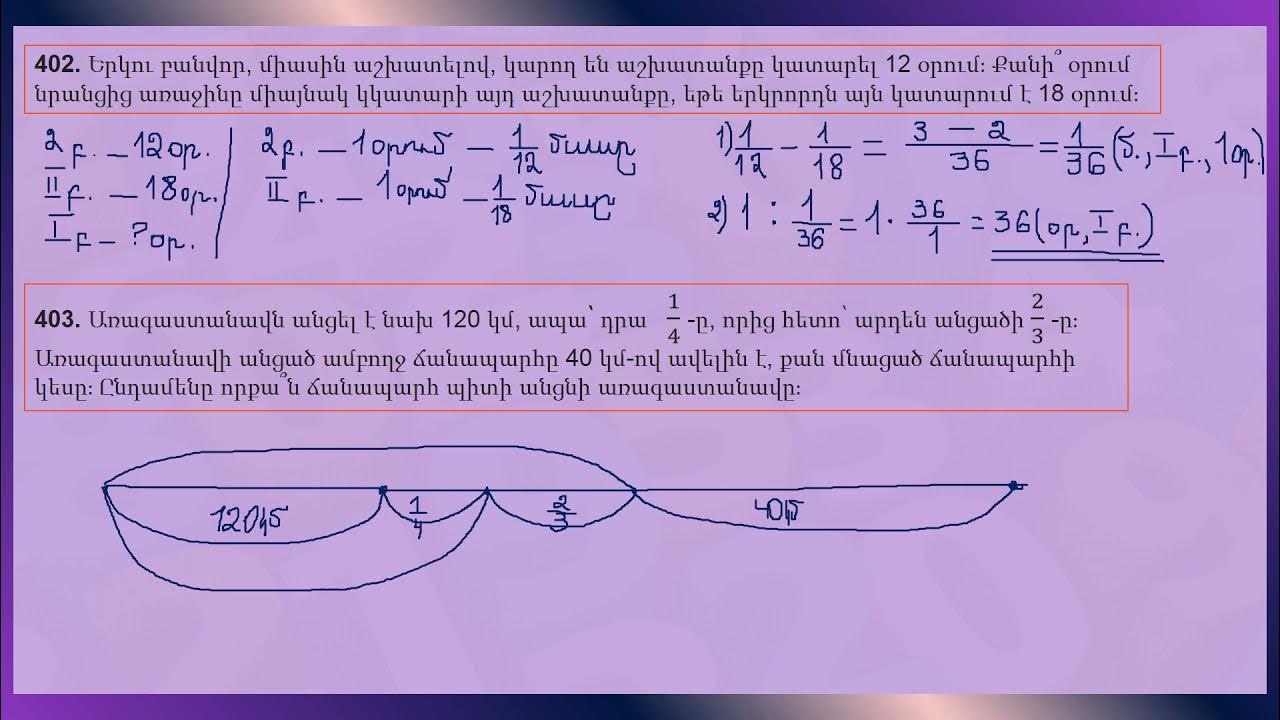 402. Երկու բանվոր, միասին աշխատելով, կարող են աշխատանքը կատարել 12 օրում: Քանի՞ օրում
նրանցից առաջինը միայնակ կկատարի այդ աշխատանքը, եթե երկրորդն այն կատարում է 18 օրում:
2բ. – 12օր.
IIբ. – 18օր.
Iբ – ?օր.
2բ. – 1օրում – 1/12 մասը
IIբ. – 1օրում – 1/18 մասը
1) 1/12 – 1/18 = (3 – 2)/36 = 1/36 (մ., Iբ., 1օր.)
2) 1 : 1/36 = 1 · 36/1 = 36(օր, Iբ.)
403. Առագաստանավն անցել է նախ 120 կմ, ապա՝ դրա 1/4 -ը, որից հետո՝ արդեն անցածի 2/3 -ը:
Առագաստանավի անցած ամբողջ ճանապարհը 40 կմ-ով ավելին է, քան մնացած ճանապարհի
կեսը: Ընդամենը որքա՞ն ճանապարհ պիտի անցնի առագաստանավը:
120կմ 1/4 2/3 40կմ